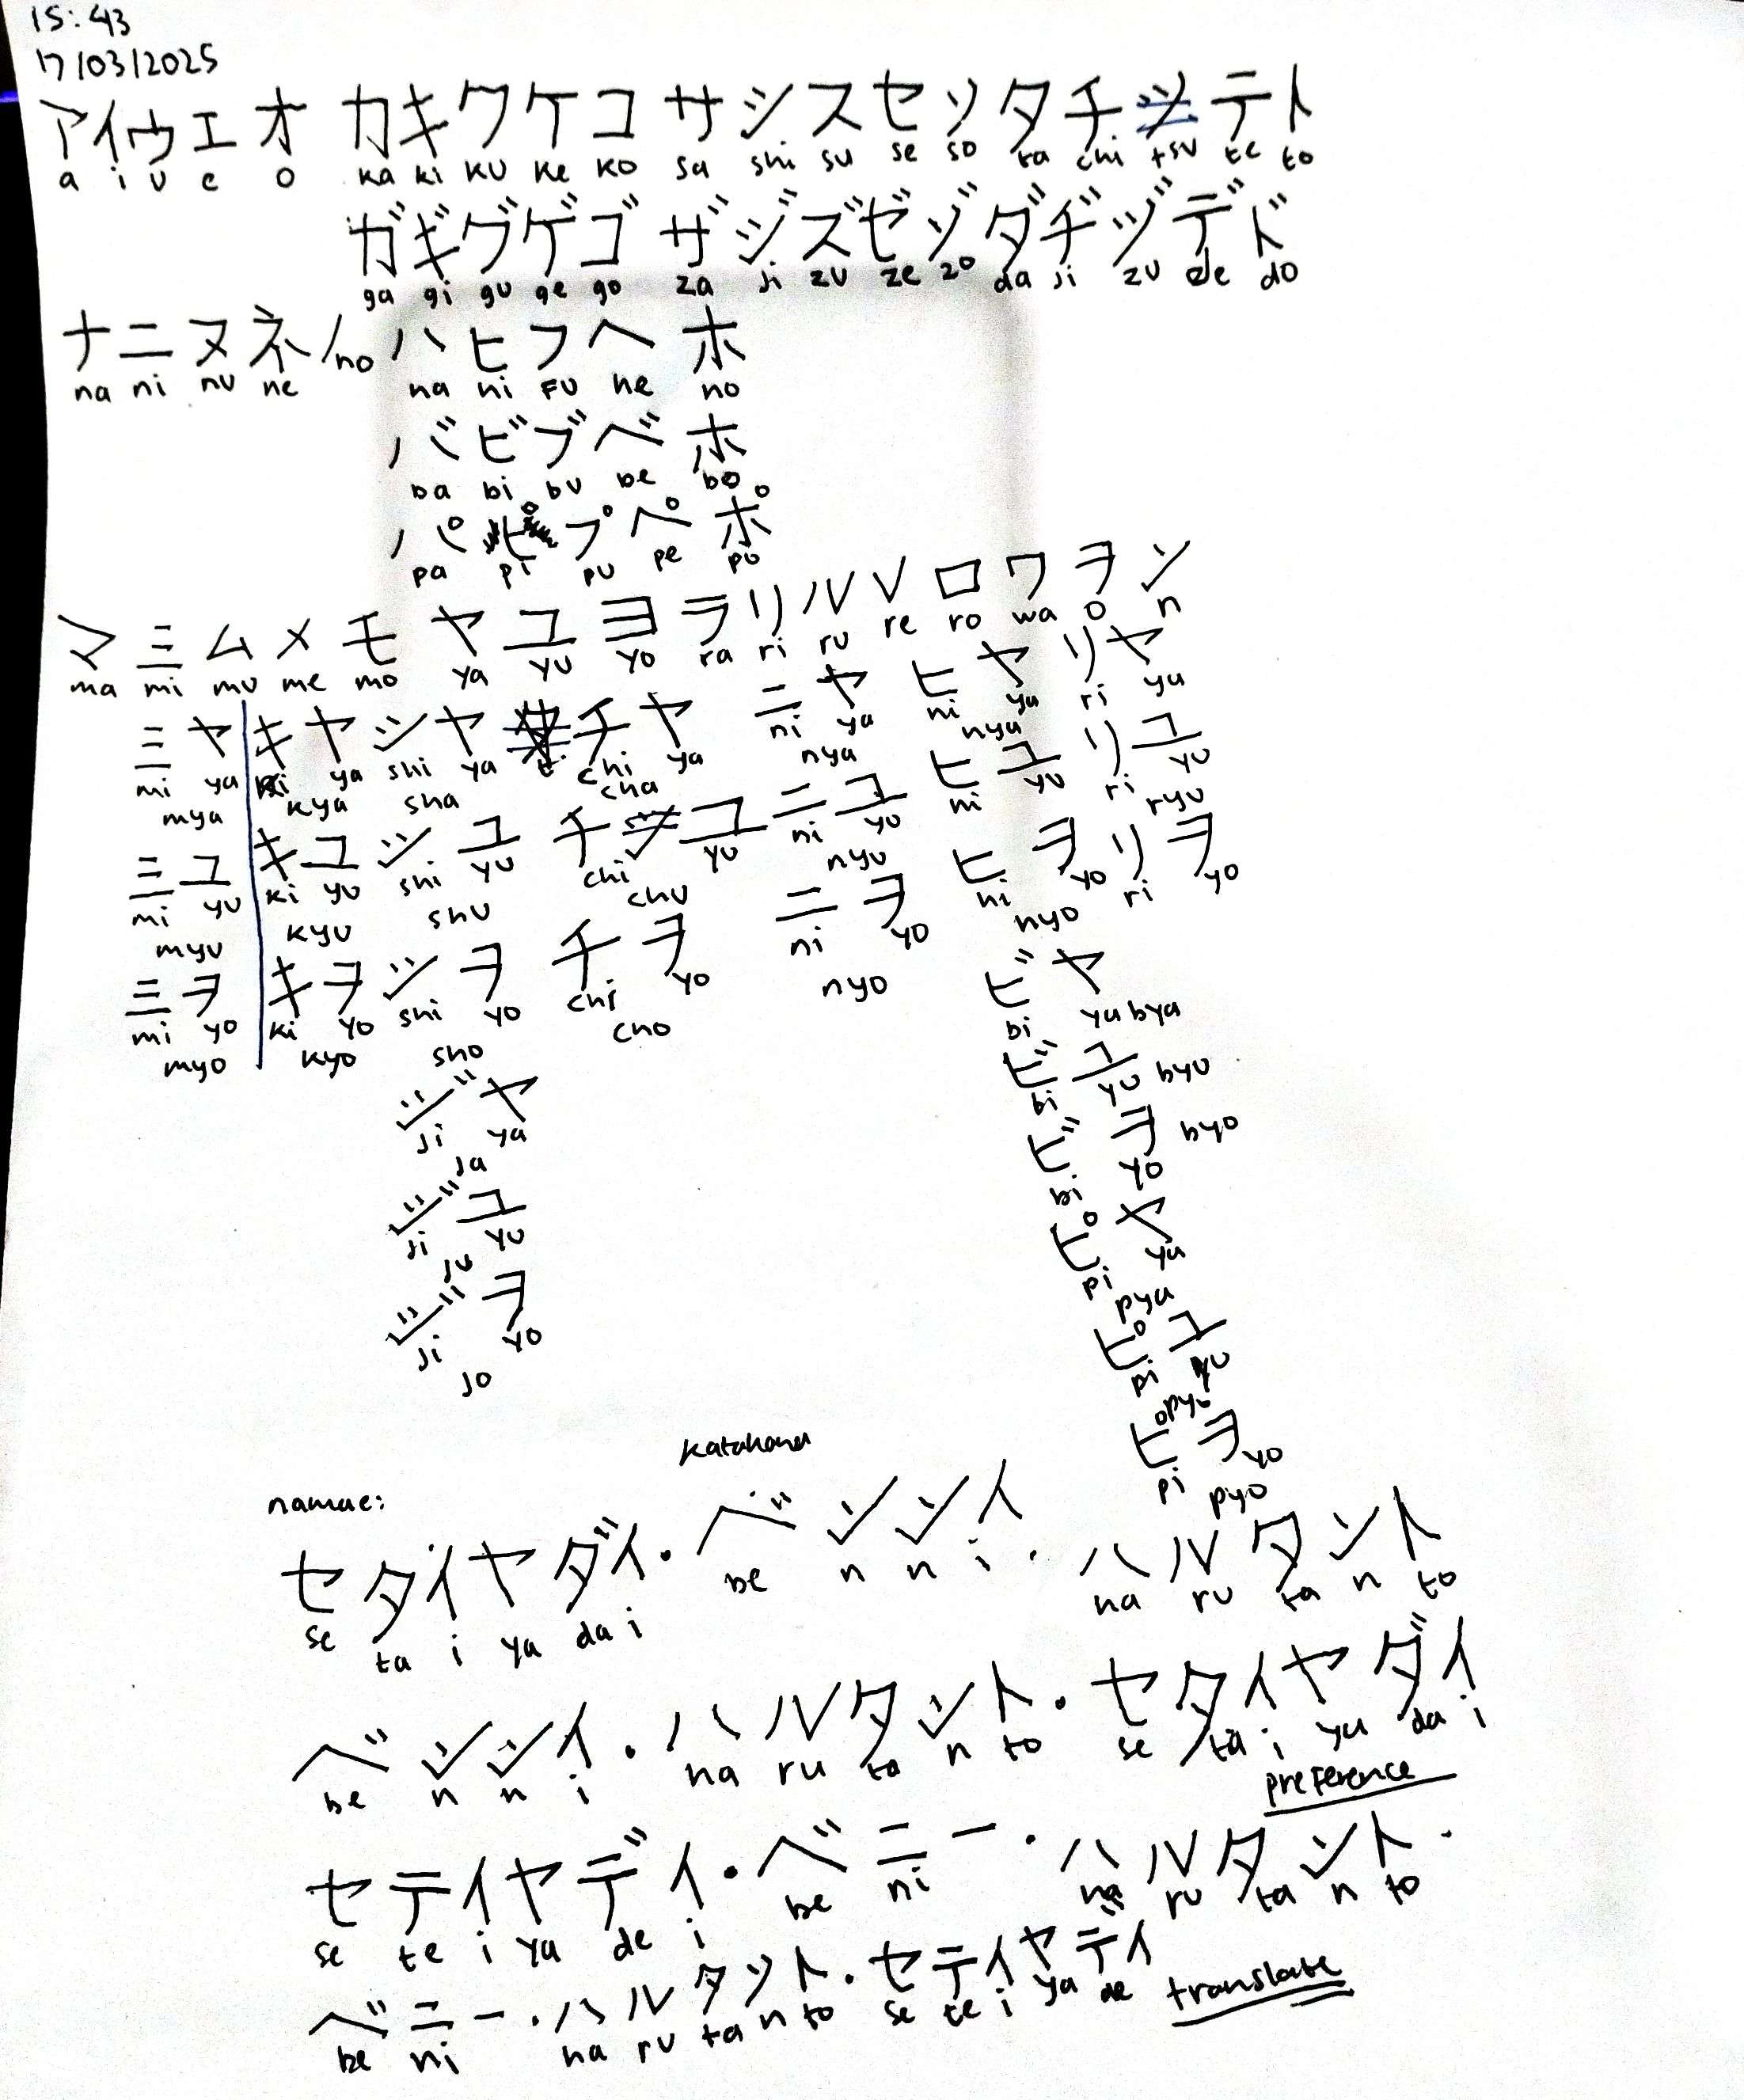 15:43
17/03/2025
アイウエオ カキクケコ サシスセソ タチツテト
a i u e o ka ki ku ke ko sa shi su se so ta chi tsu te to
ガギグゲゴ ザジズゼゾ ダヂヅデド
ga gi gu ge go za ji zu ze zo da ji zu de do
ナニヌネノ ハヒフヘホ
na ni nu ne no ha hi fu he ho
バビブベホ
ba bi bu be bo
パピプペポ
pa pi pu pe po
マミムメモ ヤユヨ ラリルレロ ワヲン
ma mi mu me mo ya yu yo ra ri ru re ro wa o n
ミヤ キヤ シヤ チヤ ニヤ ヒヤ リヤ
mi ya ki ya shi ya chi ya ni ya hi ya ri ya
mya kya sha cha nya hya
ミユ キユ シユ チユ ニユ ヒユ リユ
mi yu ki yu shi yu chi yu ni yu hi yu ri yu
myu kyu shu chu nyu ryu
ミヲ キヲ シヲ チヲ ニヲ ヒヲ リヲ
mi yo ki yo shi yo chi yo ni yo hi yo ri yo
myo kyo sho cho nyo hyo
ジヤ
ji ya
ja
ジユ
ji yu
ju
ジヲ
ji yo
jo
ビヤ
bi ya bya
ビユ
bi yu byu
ビヲ
bi yo byo
ピヤ
pi ya
pya
ピユ
pi yu
pyu
ピヲ
pi yo
pyo
katakana
namae:
セタイヤダイ・ベンンイ・ハルタント
se ta i ya da i be n n i ha ru ta n to
ベンンイ・ハルタント・セタイヤダイ
be n n i ha ru ta n to se ta i ya da i
preference
セテイヤデイ・ベニー・ハルタント・
se te i ya de i be ni ha ru ta n to
ベニー・ハルタント・セテイヤデイ
be ni ha ru ta n to se te i ya de
translate